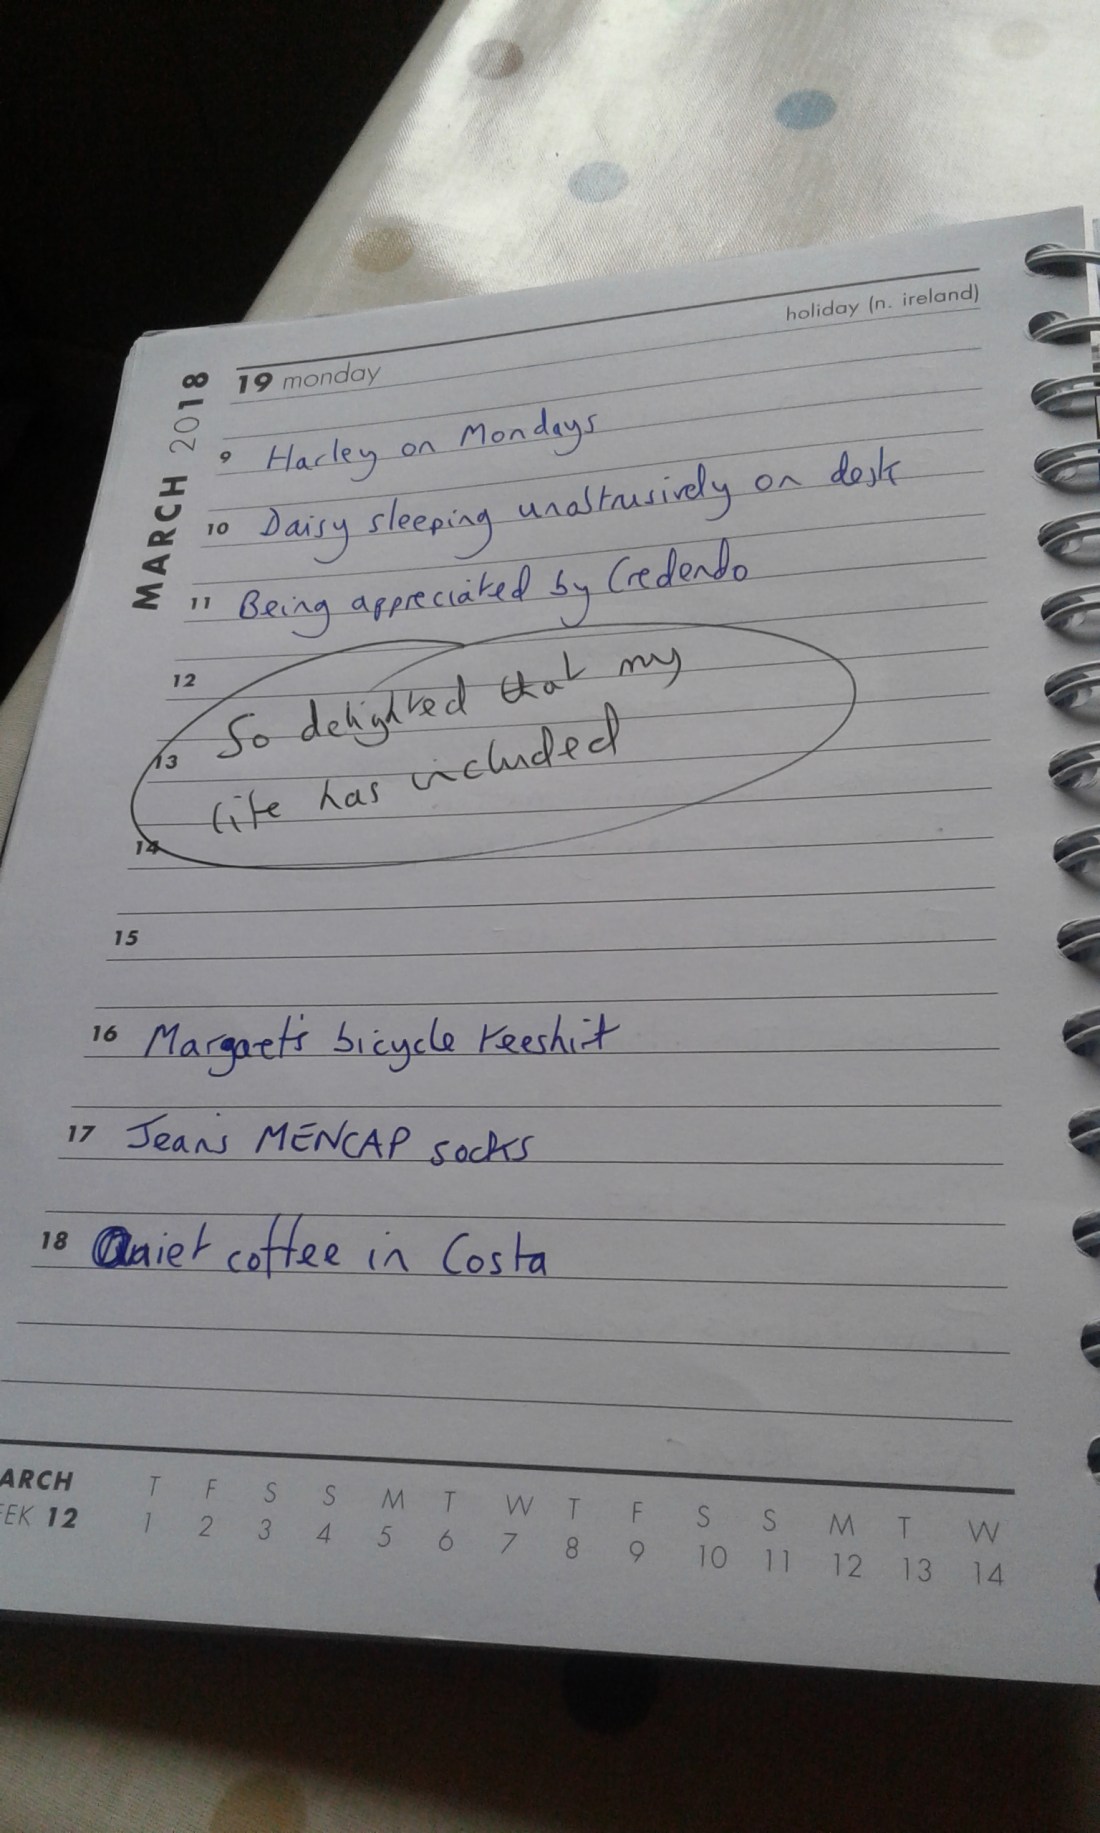 holiday (n. ireland)
MARCH 2018
19 monday
9 Harley on Mondays
10 Daisy sleeping unobtrusively on desk
11 Being appreciated by Credendo
12
So delighted that my
13
life has included
14
15
16 Margaret's bicycle teeshirt
17 Jean's MENCAP socks
18 Quiet coffee in Costa
ARCH T F S S M T W T F S S M T W
EEK 12 1 2 3 4 5 6 7 8 9 10 11 12 13 14